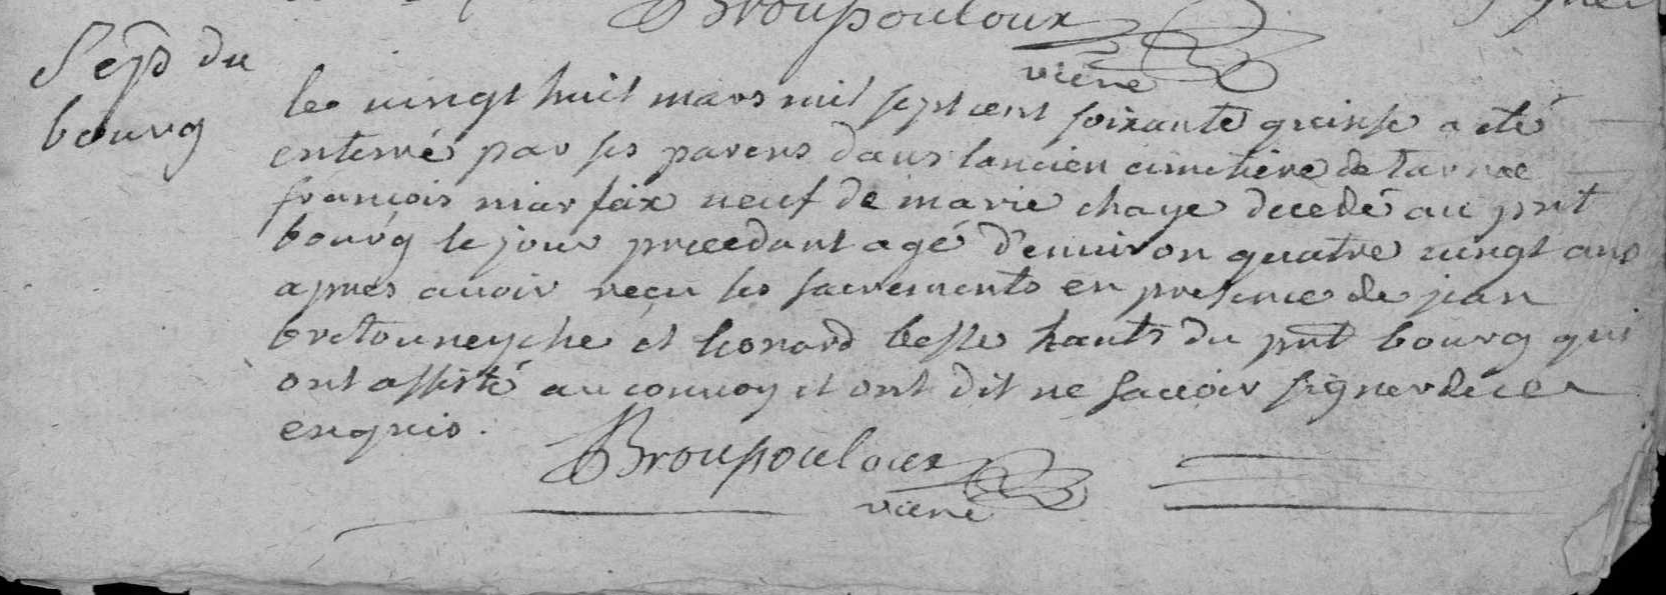 Broupouloux
vicre
Sep du
bourg
le vingt huit mars mil sept cent soixante quinse a eté
enterré par ses parens dans lancien cimetiere de tarnac
françois marfaix veuf de marie chaye decedé au pnt
bourg le jour precedant agé d'environ quatre vingt ans
apres avoir reçu les sacrements en presence de jean
bretouneyche et leonard besse hants du pnt bourg qui
ont assisté au convoy et ont dit ne sacvoir signer de ce
enquis.
Broupouloux
vicre